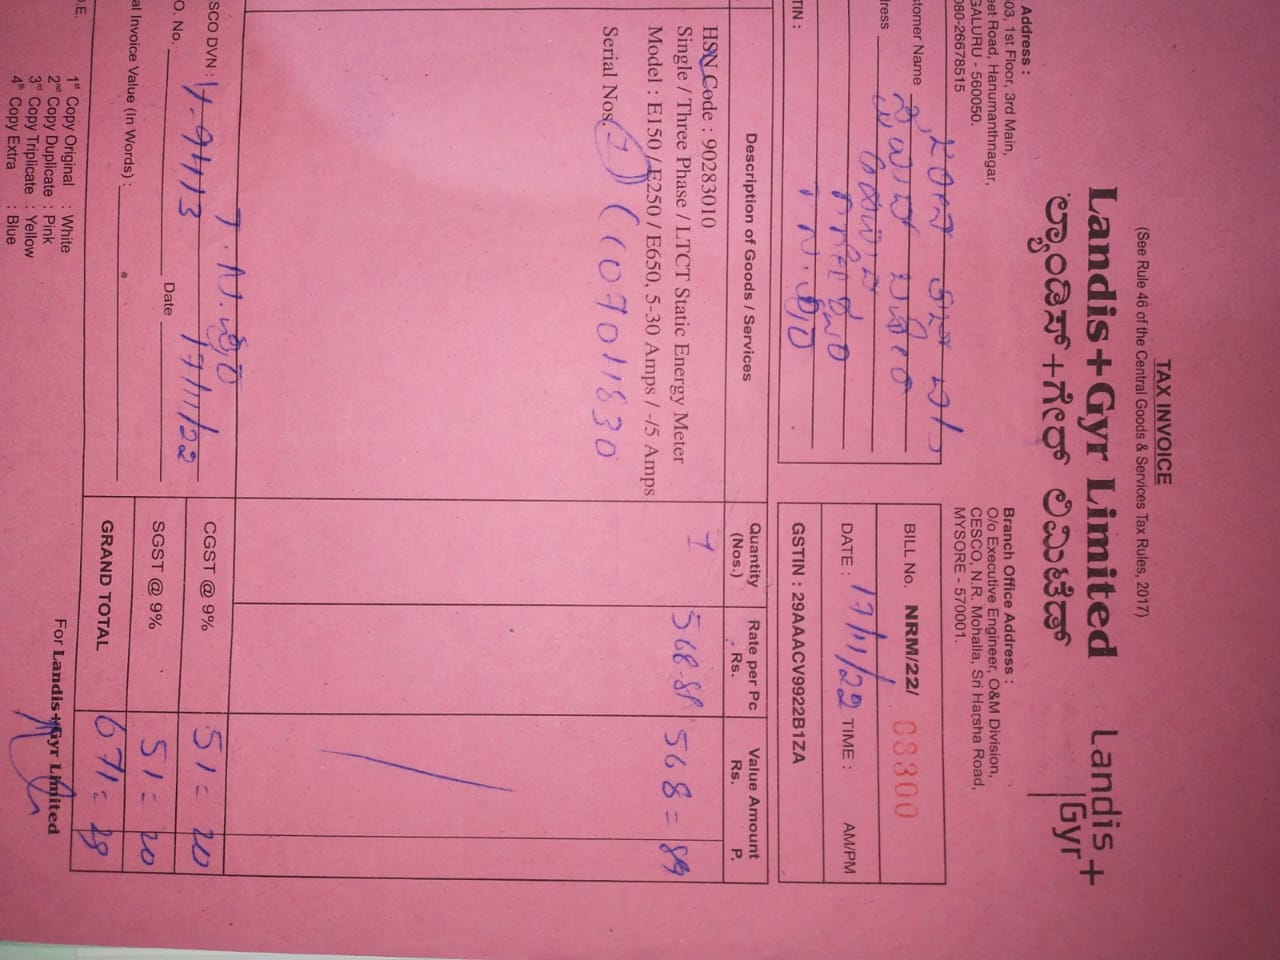 TAX INVOICE
(See Rule 46 of the Central Goods & Services Tax Rules, 2017)
Landis+Gyr Limited
ಲ್ಯಾಂಡಿಸ್+ಗೇರ್ ಲಿಮಿಟೆಡ್
Landis+
Gyr
Address :
03, 1st Floor, 3rd Main,
eet Road, Hanumanthnagar,
GALURU - 560050.
080-26678515
Branch Office Address :
O/o Executive Engineer, O&M Division,
CESCO, N.R. Mohalla, Sri Harsha Road,
MYSORE - 570001.
stomer Name
dress
TIN :
BILL No. NRM/22/ 03300
DATE : 17/11/22 TIME : AM/PM
GSTIN : 29AAACV9922B1ZA
Description of Goods / Services
Quantity (Nos.)
Rate per Pc Rs.
Value Amount
Rs. P.
HSN Code : 90283010
Single / Three Phase / LTCT Static Energy Meter
Model : E150 / E250 / E650, 5-30 Amps / -/5 Amps
Serial Nos.
1
568-89
568=89
SCO DVN :
O. No. Date 17/11/22
al Invoice Value (In Words) :
CGST @ 9% 51=20
SGST @ 9% 51=20
GRAND TOTAL 671=29
O.E.
1st Copy Original : White
2nd Copy Duplicate : Pink
3rd Copy Triplicate : Yellow
4th Copy Extra : Blue
For Landis+Gyr Limited